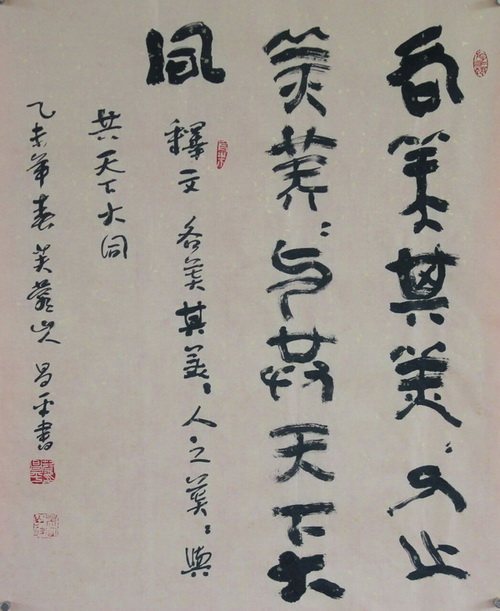 各美其美〻人之
美美〻与共天下大
同
釋文 各美其美〻人之美〻與
共天下大同
乙未年春芙蓉山人昌平書